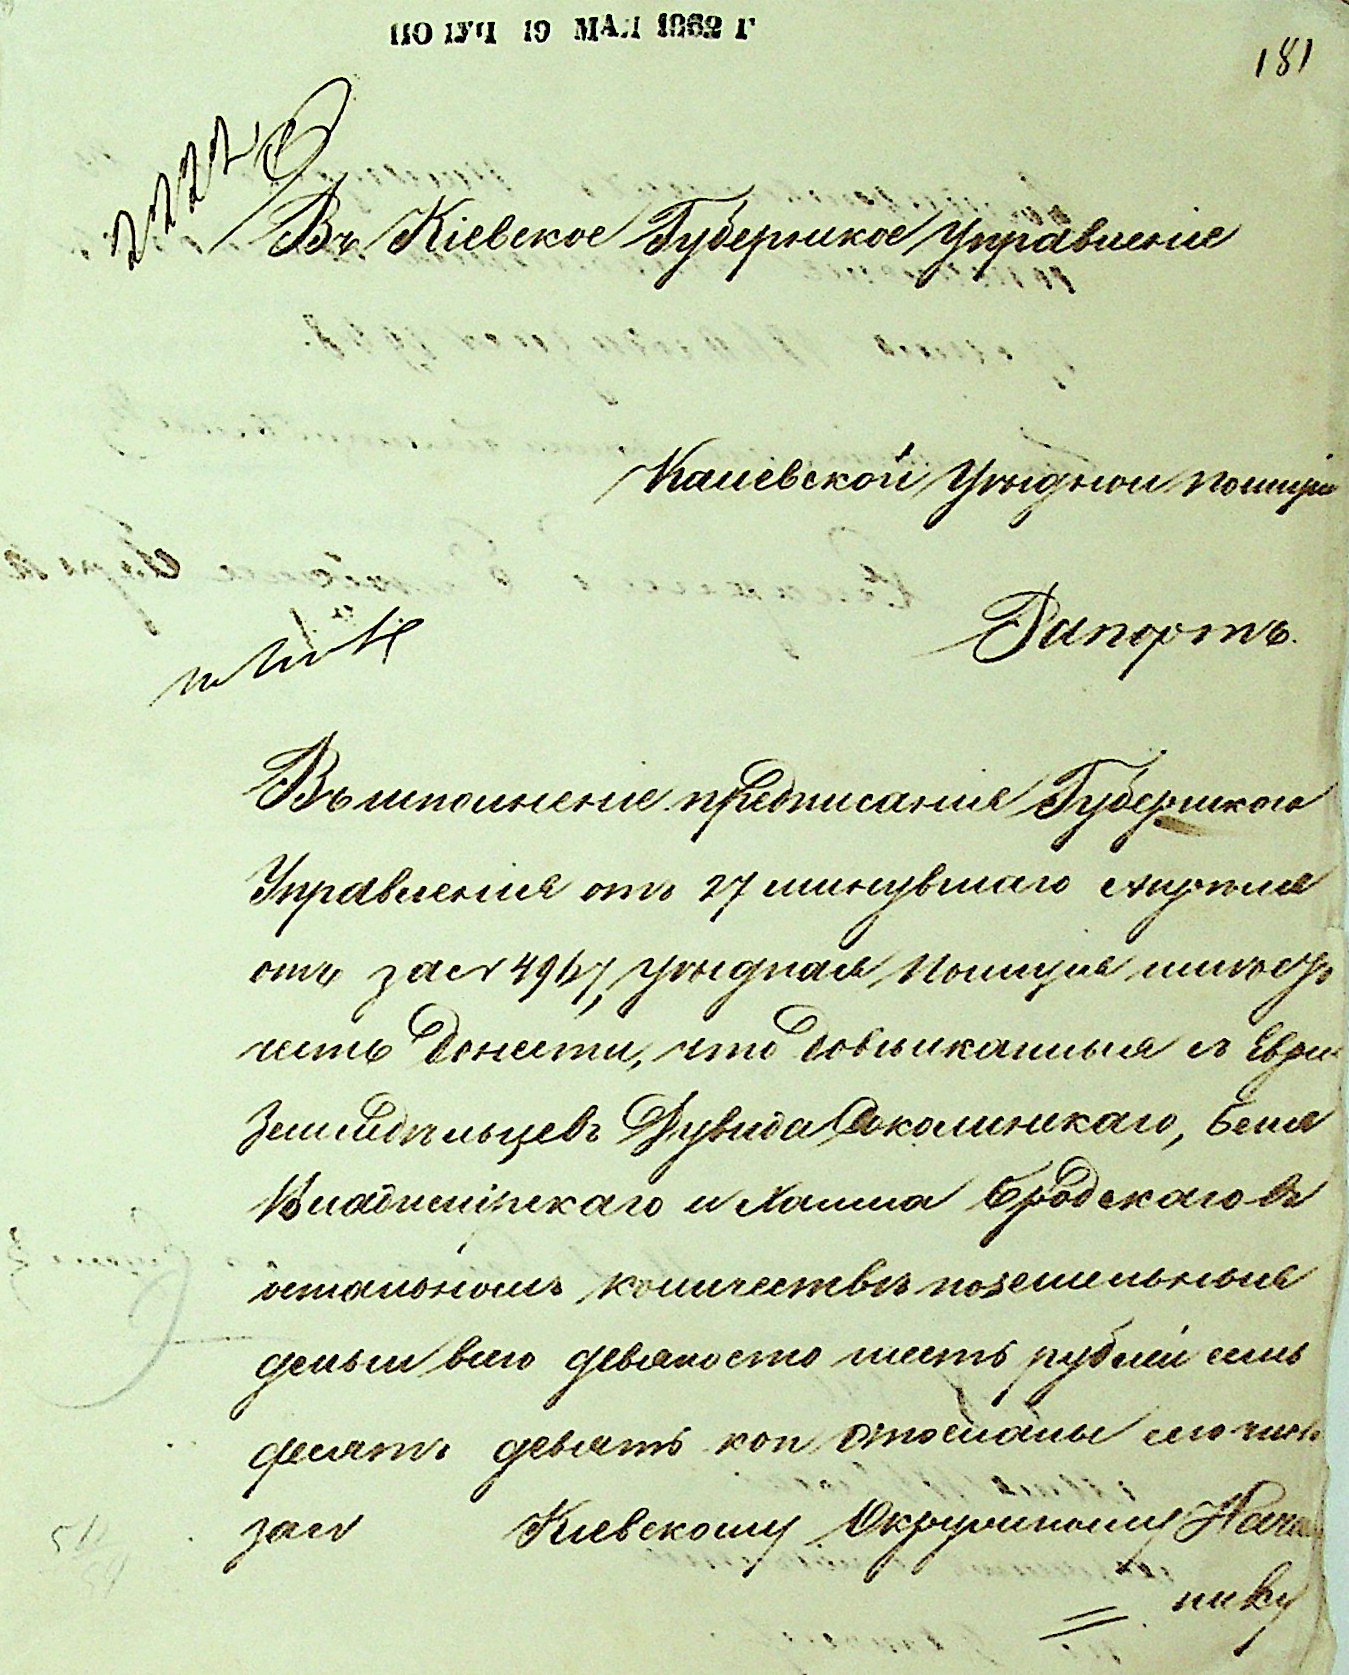 ПОЛУЧ 19 МАЯ 1862 Г
181
Въ Кіевское Губернское Управленіе
Каневской Уѣздной Полиціи
Рапортъ.
Въ исполненіе предписанія Губернского
Управленія отъ 27 минувшаго Апрѣля
за № 4947, уѣздная Полиція имѣетъ
честь донести, что довзысканныя съ Евре
Земледѣльцевъ Дувида Соколинскаго, Беня
Владимірскаго и Хаима Бродскаго въ
остальномъ количествѣ поземельныя
деньги всего девяносто шесть рублей семь
десятъ девять коп отосланы сего числ
за № Кіевскому Окружному Началь
нику